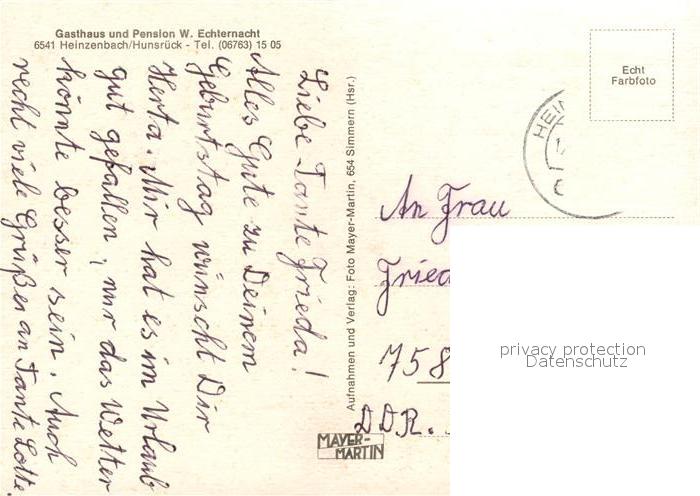 Gasthaus und Pension W. Echternacht
6541 Heinzenbach/Hunsrück - Tel. (06763) 15 05
Liebe Tante Frieda!
Alles Gute zu Deinem
Geburtstag wünscht Dir
Herta. Mir hat es im Urlaub
gut gefallen, nur das Wetter
könnte besser sein. Auch
recht viele Grüße an Tante Lotte
Aufnahmen und Verlag: Foto Mayer-Martin, 654 Simmern (Hsr.)
MAYER-
MARTIN
Echt
Farbfoto
HEIN
An Frau
Fried
758
DDR.
privacy protection
Datenschutz